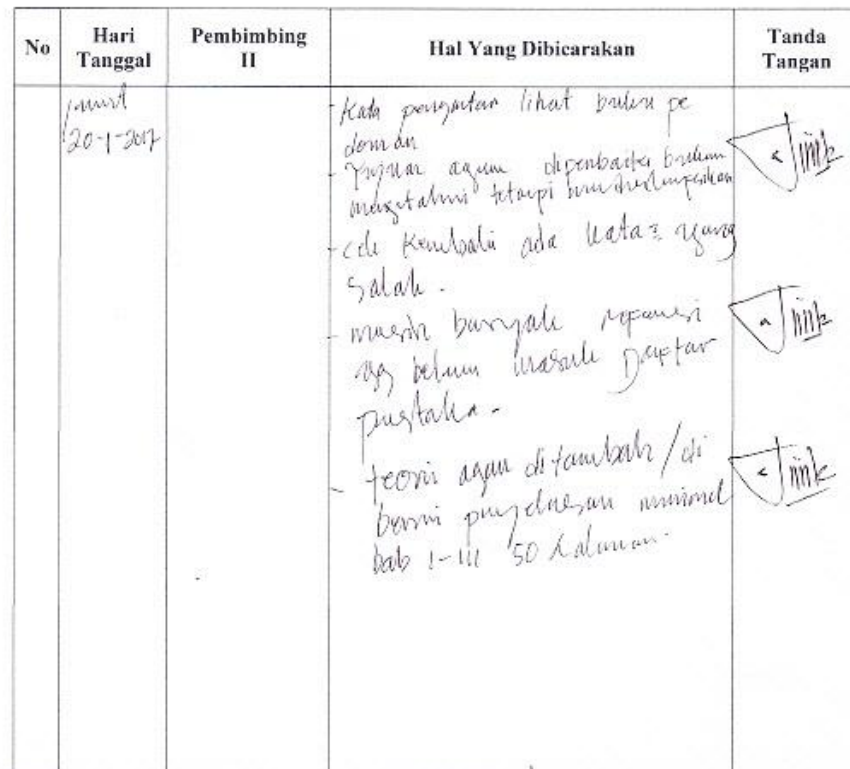 No Hari Tanggal Pembimbing II Hal Yang Dibicarakan Tanda Tangan
Jum'at
20-1-2017
- Kata pengantar lihat buku pe
doman
- Tujuan agar diperbaiki bukan
mengetahui tetapi
- cek kembali ada kata2 yang
salah.
- masih banyak referensi
yg belum masuk Daftar
pustaka.
- teori agar ditambah/di
beri penjelasan minimal
bab I-III 50 halaman.